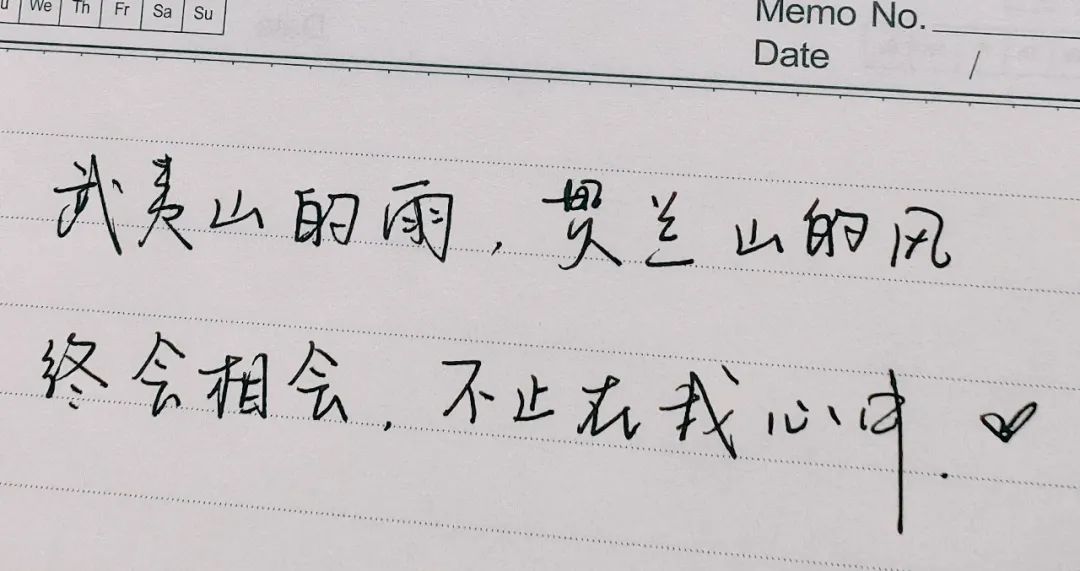 We Th Fr Sa Su
Memo No.
Date /
武夷山的雨，贺兰山的风
终会相会，不止在我心中.